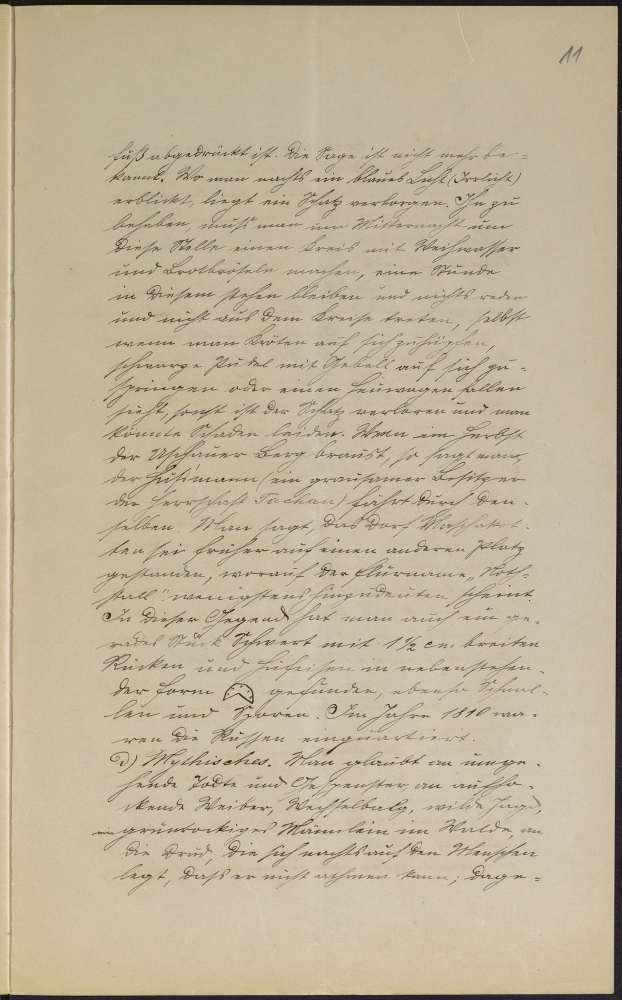 11
fuß abgedrückt ist. Die Sage ist nicht mehr be-
kannt. Wo man nachts ein blaues Licht (Irrlicht)
erblickt, liegt ein Schatz verborgen. Ihn zu
beheben, muß man um Mitternacht um
diese Stelle einen Kreis mit Weihwasser
und Brotbröseln machen, eine Stunde
in diesem stehen bleiben und nichts reden
und nicht aus dem Kreise treten, selbst
wenn man Kröten auf sich zuhüpfen,
schwarze Pudel mit Gebell auf sich zu-
springen oder einen Heuwagen fallen
sieht, sonst ist der Schatz verloren und man
könnte Schaden leiden. Wenn im Herbst
der Uschauer Berg braust, so sagt man,
der Husmann (ein grausamer Besitzer
der Herrschaft Tachau) fährt durch den-
selben. Man sagt, das Dorf
ten sei früher auf einem anderen Platz
gestanden, worauf der Flurname „Roth-
stall" wenigstens hinzudeuten scheint.
In dieser Gegend hat man auch ein ge-
rades Stück Schwert mit 1½ cm. breiten
Rücken und Hufeisen in nebenstehen-
der Form gefunden, ebenso Schnal-
len und Sporen. Im Jahre 1810 wa-
ren die Russen einquartiert.
d) Mythisches. Man glaubt an umge-
hende Todte und Gespenster, an aufho-
ckende Weiber, Wechselbalg, wilde Jagd,
ein grünrockiges Männlein im Walde, an
die Drud, die sich nachts auf den Menschen
legt, daß er nicht athmen kann; dage-